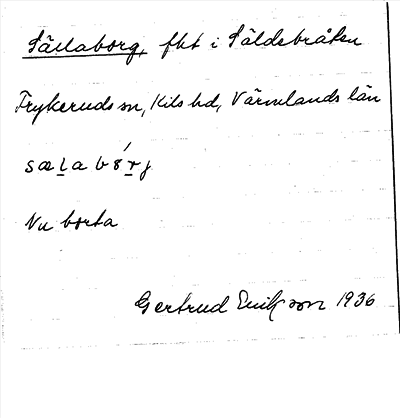 Sällaborg, fht i Säldebråten
Frykeruds sn, Kils hd, Värmlands län
sælabórj
Nu borta
Gertrud Erikson 1936